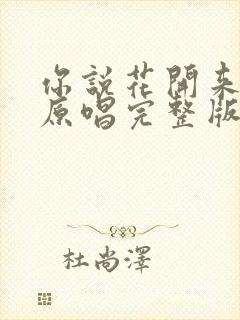 你說花開來
原唱完整版
杜尚澤